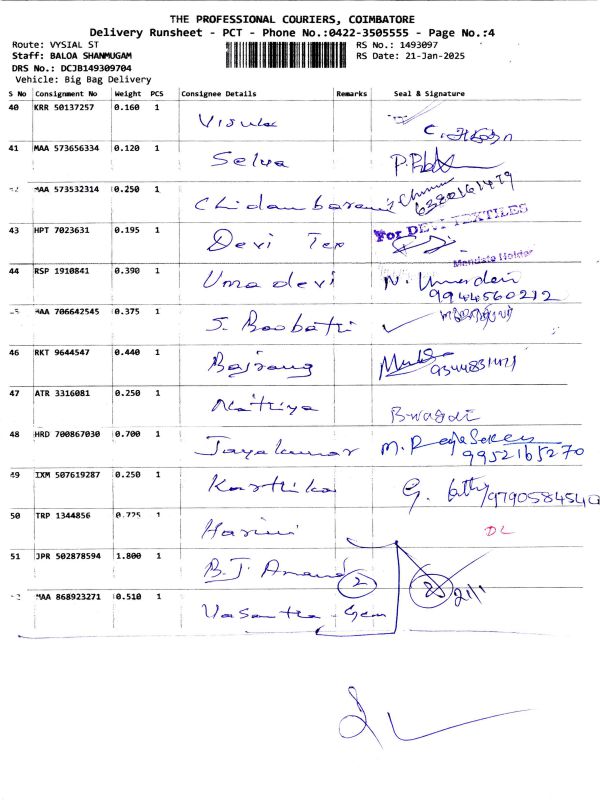 THE PROFESSIONAL COURIERS, COIMBATORE
Delivery Runsheet - PCT - Phone No.:0422-3505555 - Page No.:4
Route: VYSIAL ST RS No.: 1493097
Staff: BALOA SHANMUGAM RS Date: 21-Jan-2025
DRS No.: DCJB149309704
Vehicle: Big Bag Delivery
S No Consignment No Weight PCS Consignee Details Remarks Seal & Signature
40 KRR 50137257 0.160 1
41 MAA 573656334 0.120 1 Selva
MAA 573532314 0.250 1 Chidambaram 6380161479
43 HPT 7023631 0.195 1 Devi Tex For DEVI TEXTILES
Mandate Holder
44 RSP 1910841 0.390 1 Uma devi N. Umadevi
9944560212
MAA 706642545 0.375 1 S. Boobathi
46 RKT 9644547 0.440 1 Bajrang
47 ATR 3316081 0.250 1 Nithya
48 HRD 700867030 0.700 1 Jayakumar M. Rajasekar
9952165270
49 IXM 507619287 0.250 1 Karthika 9790584540
50 TRP 1344856 0.725 1 Harini DL
51 JPR 502878594 1.800 1 B.J. Anand 2 21/1
MAA 868923271 0.510 1 Vasantha Gem